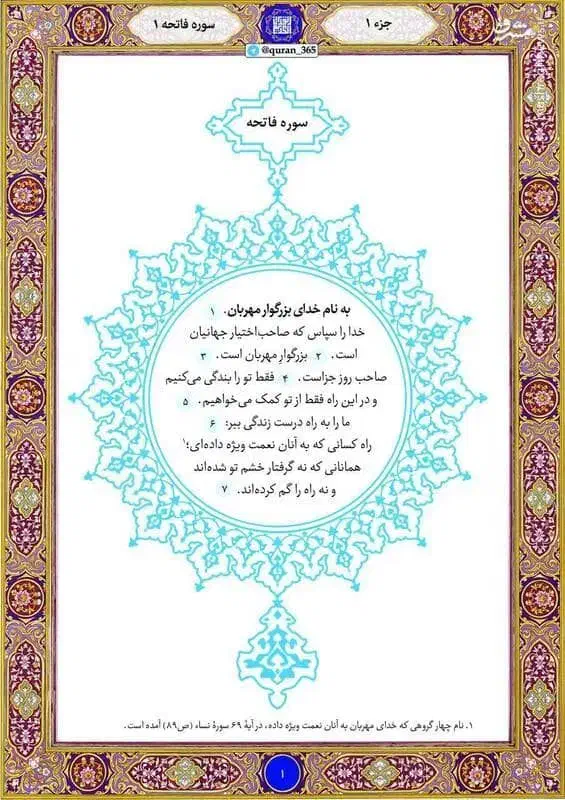 جزء ۱
سوره فاتحه ۱
@quran_365
سوره فاتحه
به نام خدای بزرگوار مهربان. ۱
خدا را سپاس که صاحب‌اختیار جهانیان
است. ۲ بزرگوارِ مهربان است. ۳
صاحب روز جزاست. ۴ فقط تو را بندگی می‌کنیم
و در این راه فقط از تو کمک می‌خواهیم. ۵
ما را به راه درست زندگی ببر: ۶
راه کسانی که به آنان نعمت ویژه داده‌ای؛۱
همانانی که نه گرفتار خشم تو شده‌اند
و نه راه را گم کرده‌اند. ۷
۱. نام چهار گروهی که خدای مهربان به آنان نعمت ویژه داده، در آیهٔ ۶۹ سورهٔ نساء (ص۸۹) آمده است.
۱